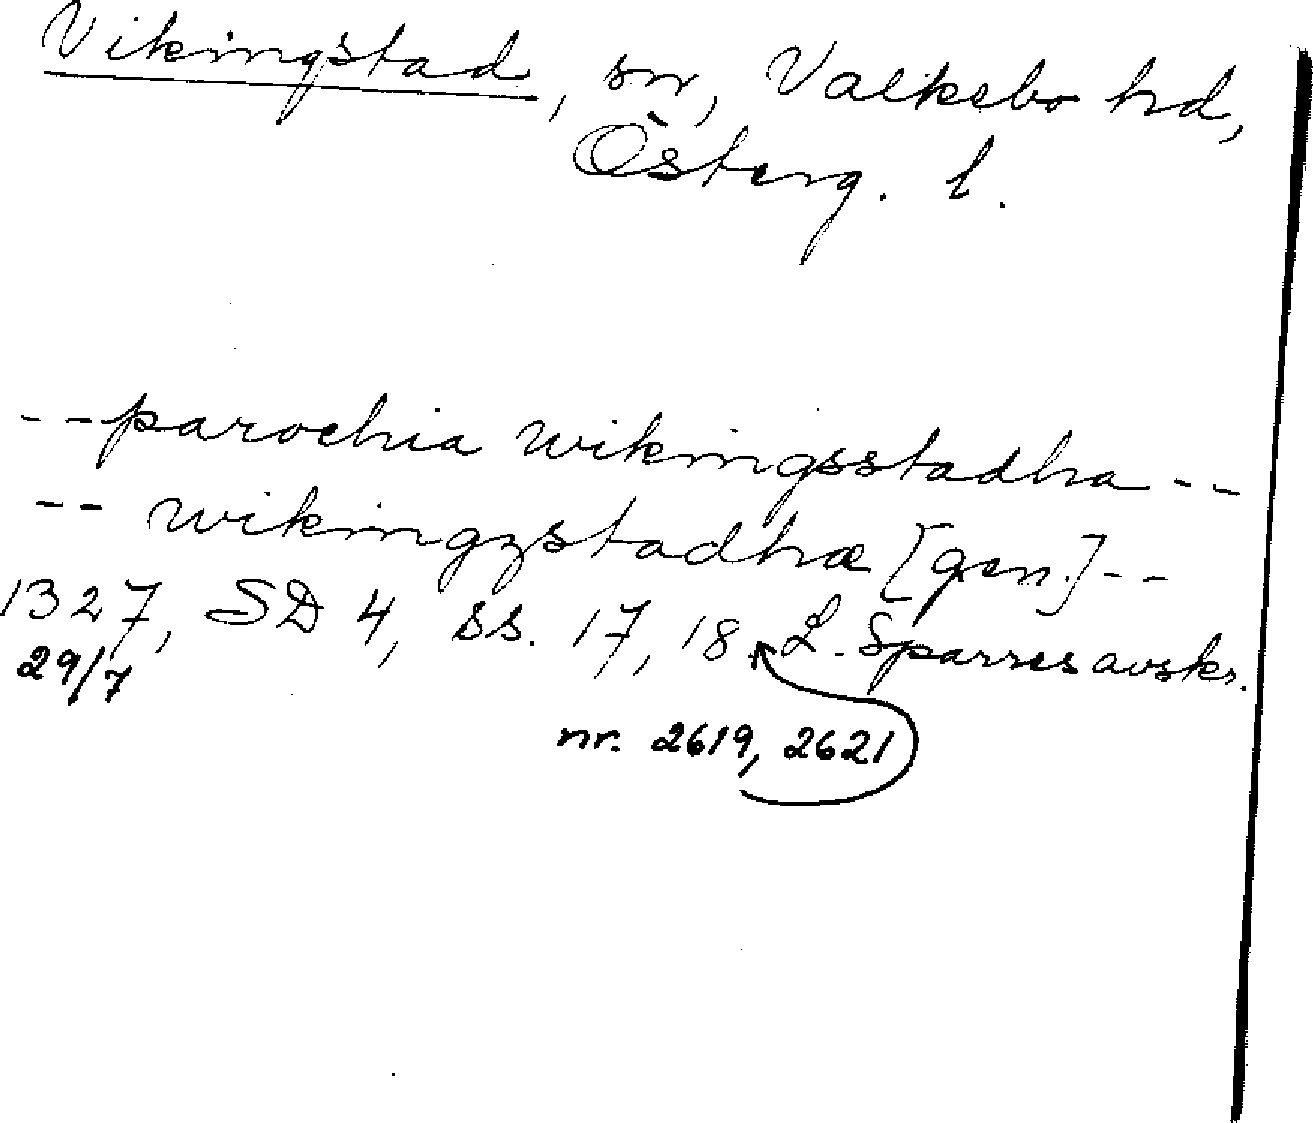 Vikingstad, sn, Valkebo hd,
Österg. l.
--parochia wikingsstadha--
-- wikingzstadhæ [gen.]--
1327, SD 4, ss. 17, 18. L. Sparres avskr.
29/7
nr. 2619, 2621